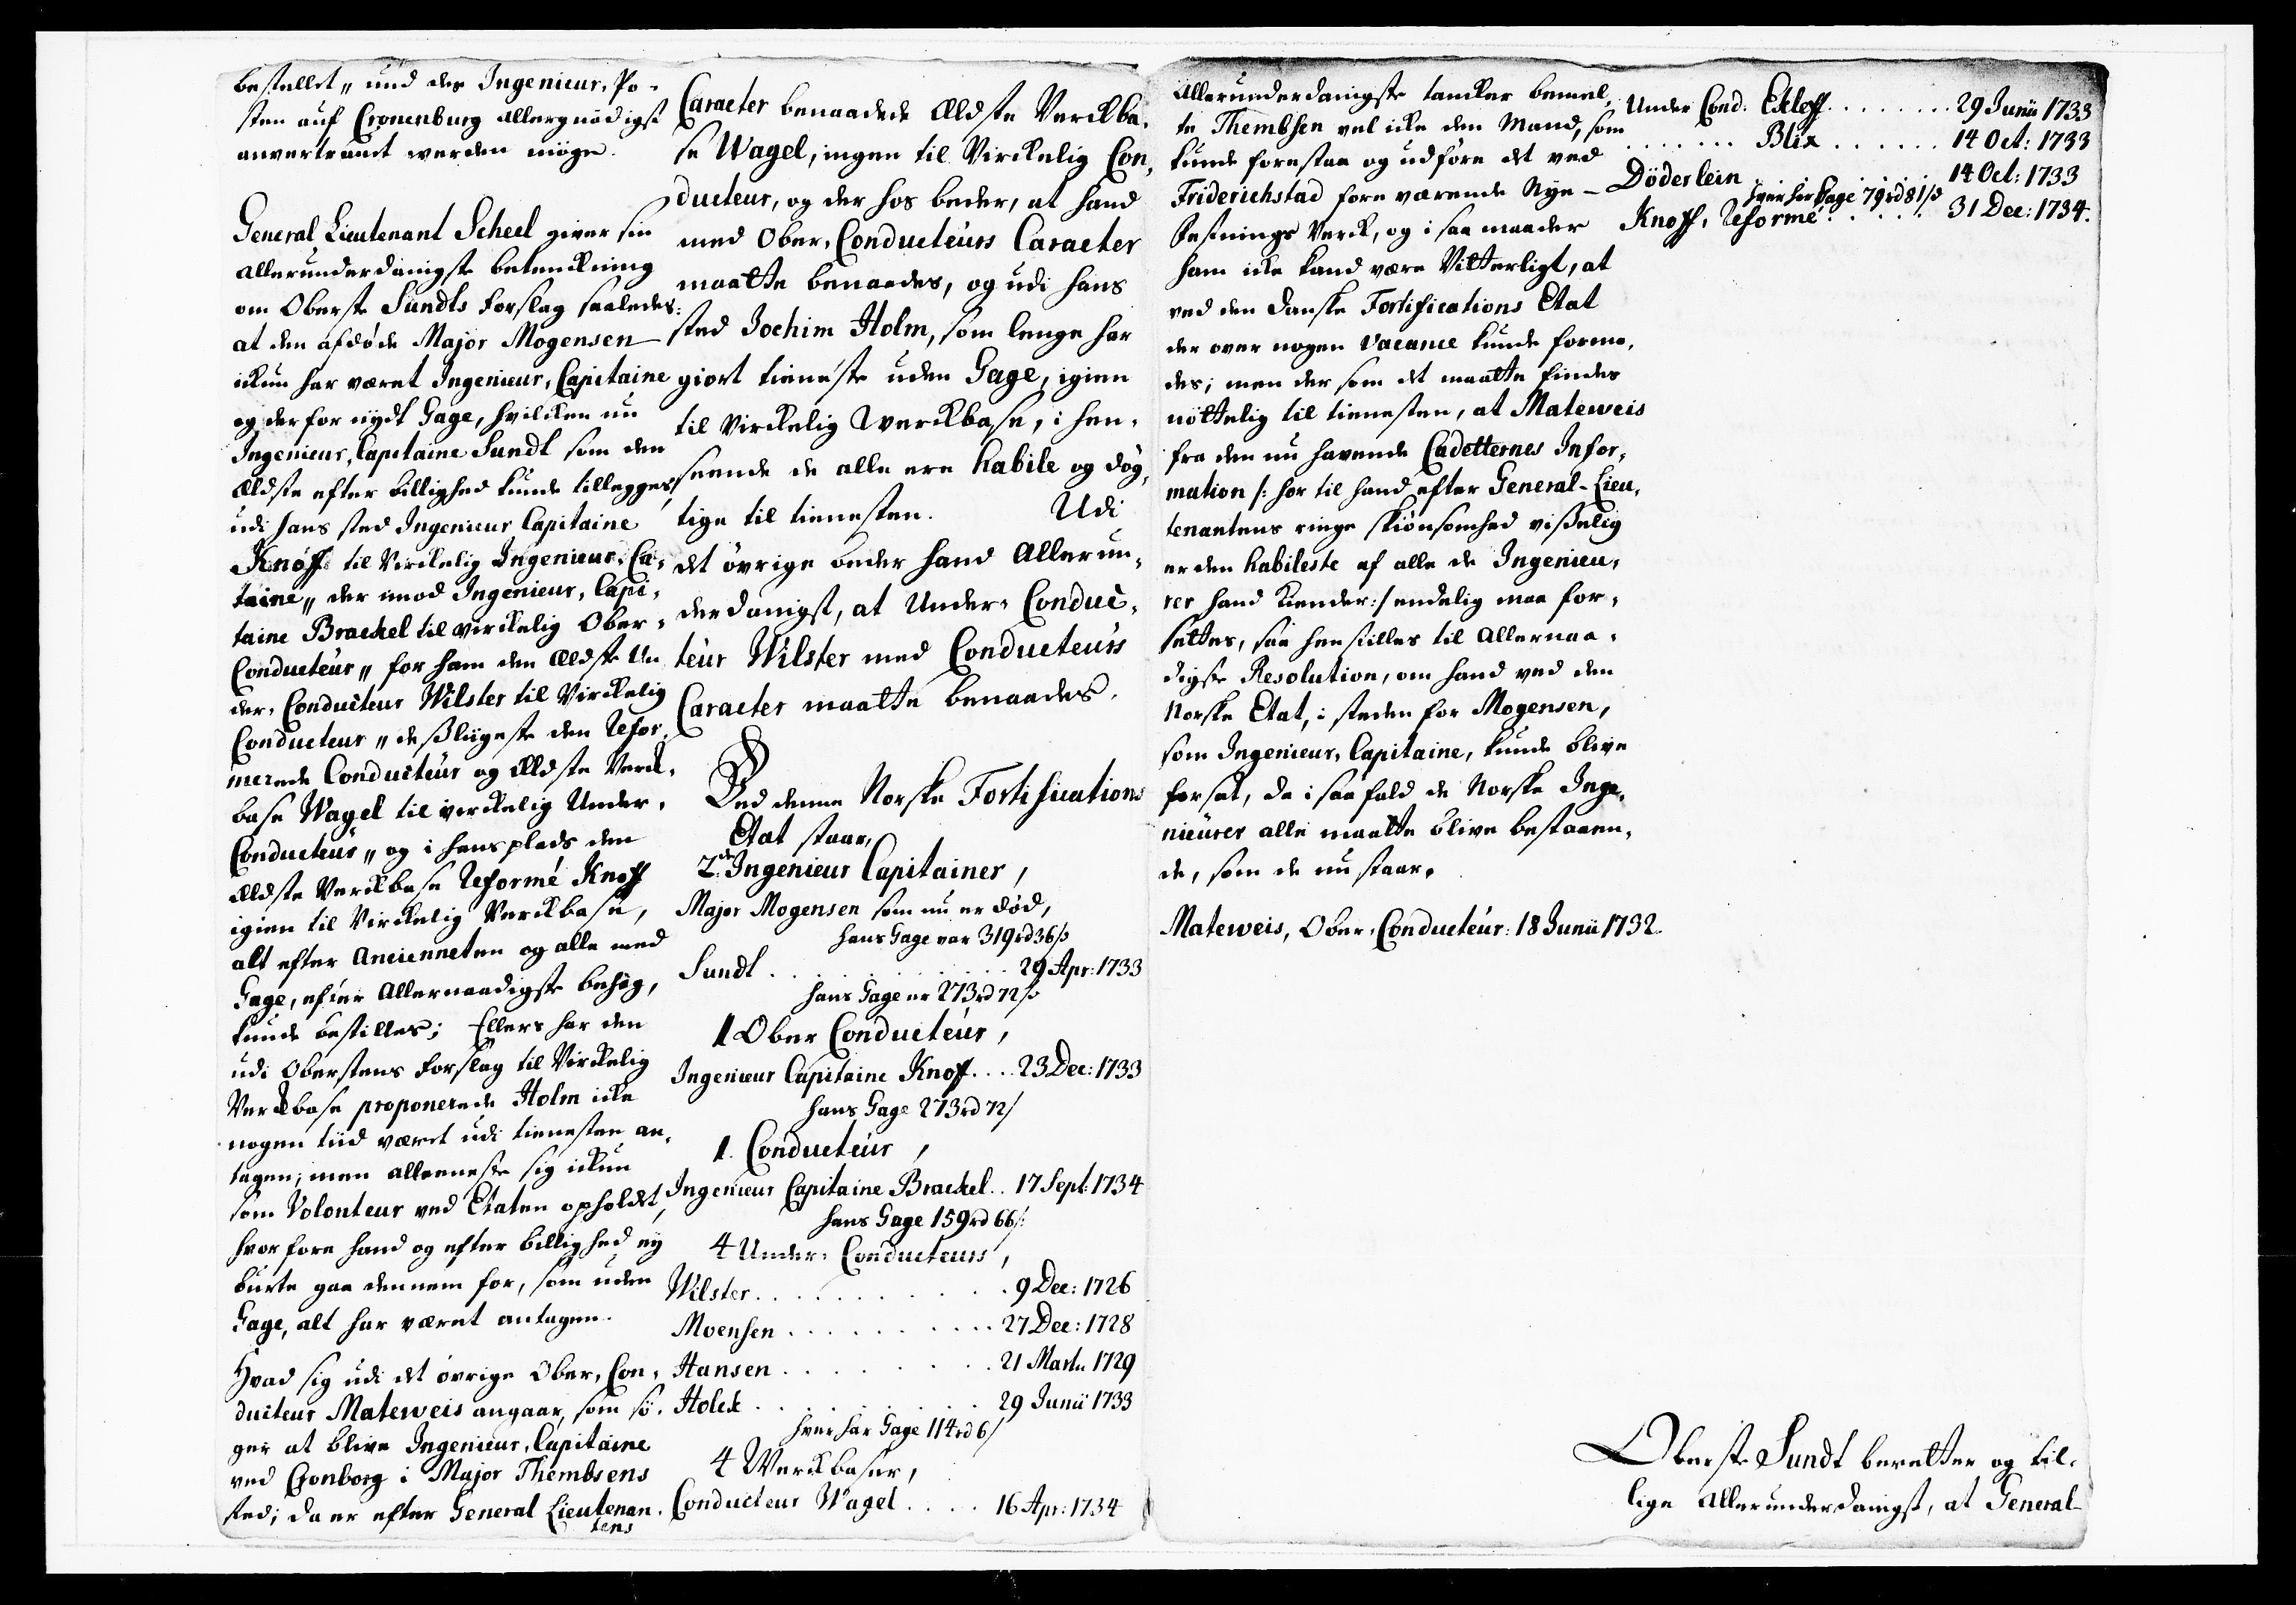 bestellet,, und der Ingenieur, Po-
sten auf Cronenburg allergnödigst
anvertrauet werden möge.
General Lieutenant Scheel giver sin
allerunderdanigste betenckning
om Oberste Sundts forslag saaledes:
at den afdøde Major Mogensen
ickun har været Ingenieur, Capitaine
og derfor nydt Gage, hvilcken nu
Ingenieur, Capitaine Sundt som den
Eldste efter billighed kunde tillegges,
udi hans sted Ingenieur Capitaine
Knoff til Virckelig Ingenieur, Ca-
taine,, der imod Ingenieur, Capi-
taine Brackel til virckelig Ober-
Conducteur,, for ham den Eldste Un
der, Conducteur Wilster til Virckelig
Conducteur,, desligeste den Refor-
merede Conducteur og Eldste Verck-
base Wagel til virckelig Under-
Conducteur,, og i hans plads den
Eldste Verckbase Reformé Knoff
igien til Virckelig Verckbase,
alt efter Ancienneten og alle med
Gage, efter Allernaadigste behag,
kunde bestilles; Ellers har den
udi Oberstens forslag til Virckelig
Verckbase proponerede Holm icke
nogen tiid været udi tienesten an-
tagen; men alleeneste sig ickun
som Volonteur ved Etaten opholdet,
hvorfore hand og efter billighed ey
burte gaa dennem for, som uden
Gage, alt har været antagen.
Hvad sig udi det øvrige Ober, Con-
ducteur Mateweis angaar, som sø-
ger at blive Ingenieur, Capitaine
ved Cronborg i Major Thembsens
sted; da er efter General Lieutenan-
tens
Caracter benaadede Eldste Verckba-
se Wagel, ingen til Virckelig Con-
ducteur, og der hos beder, at hand
med Ober, Conducteurs Caracter
maatte benaades, og udi hans
sted Jochim Holm, som lenge har
giort tieneste uden Gage, igien
til Virckelig Werckbase, i hen-
seende de alle ere habile og døg-
tige til tienesten. Udi
det øvrige beder hand Allerun-
derdanigst, at Under- Conduc-
teur Wilster med Conducteurs
Caracter maatte benaades.
Ved denne Norske Fortifications
Etat staar,
2de Ingenieur Capitainer,
Major Mogensen som nu er død,
hans Gage var 319 rd 36 s
Sundt . . . . . . . 29 Apr: 1733
hans Gage er 273 rd 72 s
1 Ober Conducteur,
Ingenieur Capitaine Knoff. . . . 23 Dec: 1733
hans Gage 273 rd 72 s
1. Conducteur,
Ingenieur Capitaine Brackel. . 17 Sept: 1734
hans Gage 159 rd 66 s:
4 Under- Conducteurs,
Wilster. . . . . . . . 9 Dec: 1726
Moensen . . . . . . . 27 Dec: 1728
Hansen . . . . . . . 21 Martii 1729
Holck . . . . . . . 29 Junii 1733
hver har Gage 114 rd 6 s
4 Werckbaser,
Conducteur Wagel . . . . 16 Apr: 1734
Allerunderdanigste tancker bemel-
te Thembsen vel icke den Mand, som
kunde forestaa og udføre det ved
Friderichstad fore værende Nye-
festnings Verck, og i saa maader
ham icke kand være Vitterligt, at
ved den danske Fortifications Etat
der over nogen Vacance kunde forme-
des; men der som det maatte findes
nöttelig til tienesten, at Mateweis
fra den nu havende Cadetternes Infor-
mation /: hor til hand efter General-Lieu-
tenantens ringe skiönsomhed visselig
er den habileste af alle de Ingenieu-
rer hand kiender:/ endelig maa for-
settes, saa henstilles til Allernaa-
digste Resolution, om hand ved den
Norske Etat, i steden for Mogensen,
som Ingenieur, Capitaine, kunde blive
forsat, da i saa fald de Norske Inge-
nieurer alle maatte blive bestaaen-
de, som de nu staar.
Mateweis, Ober, Conducteur: 18 Junii 1732.
Under Cond: Exleff. . . . . . . . 29 Junii 1733
. . . . . . . Blix . . . . . . 14 Oct: 1733
Döderlein . . . . . . 14 Oct: 1733
hver har Gage 79 rd 81 s
Knoff, Reformé . . . . . 31 Dec: 1734.
Oberste Sundt beretter og til-
lige Allerunderdanigst, at General-